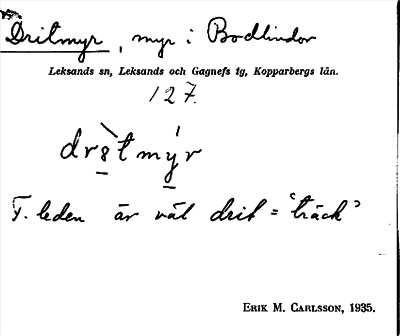 Dritmyr, myr i Bodlindor
Leksands sn, Leksands och Gagnefs tg, Kopparbergs län.
127.
F. leden är väl drit = 'träck'
ERIK M. CARLSSON, 1935.